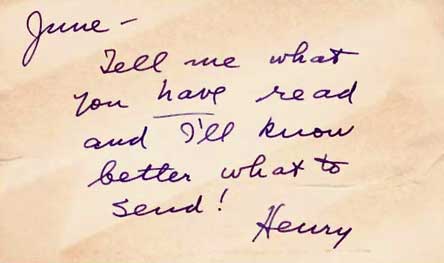 June –
Tell me what
you have read
and I'll know
better what to
send!
Henry